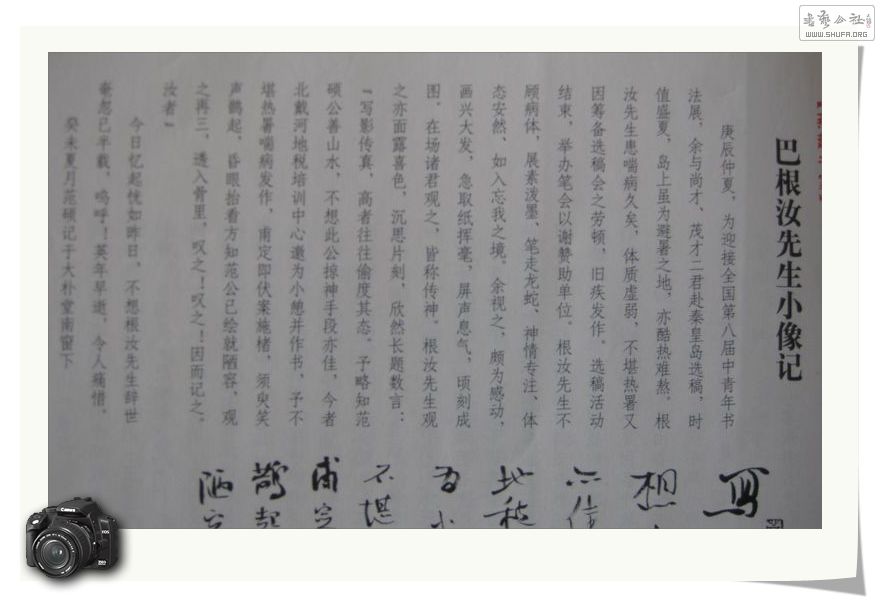 巴根汝先生小像记
庚辰仲夏，为迎接全国第八届中青年书
法展，余与尚才、茂才二君赴秦皇岛选稿，时
值盛夏，岛上虽为避暑之地，亦酷热难熬。根
汝先生患喘病久矣，体质虚弱，不堪热暑又
因筹备选稿会之劳顿，旧疾发作。选稿活动
结束，举办笔会以谢赞助单位。根汝先生不
顾病体，展素泼墨、笔走龙蛇、神情专注、体
态安然，如入忘我之境。余视之，颇为感动，
画兴大发，急取纸挥毫，屏声息气，顷刻成
图。在场诸君观之，皆称传神。根汝先生观
之亦面露喜色，沉思片刻，欣然长题数言：
“写影传真，高者往往偷度其态。予略知范
硕公善山水，不想此公掠神手段亦佳，今者
北戴河地税培训中心邀为小憩并作书，予不
堪热暑喘病发作，甫定即伏案施楮，须臾笑
声鹊起，昏眼抬看方知范公已绘就陋容，观
之再三，透入骨里，叹之！叹之！因而记之。
汝者”
今日忆起恍如昨日，不想根汝先生辞世
奄忽已半载，呜呼！英年早逝，令人痛惜。
癸未夏月范硕记于大朴堂南窗下
写
想
亦佳
地税
为小
不堪
甫定
鹊起
陋容
书艺公社
WWW.SHUFA.ORG
Canon
EOS